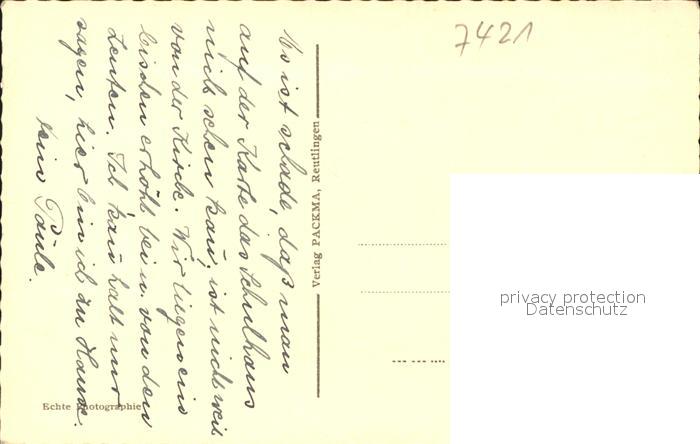 7421
Es ist schade, daß man
auf der Karte das Schulhaus
nicht sehen kann, ist nicht weit
von der Kirche. Wir liegen ein
bischen erhöht bei u. von den
Leuten. Ich kann halt nur
sagen, hier bin ich zu Hause.
Paule.
Verlag PACKMA, Reutlingen
Echte Photographie
privacy protection
Datenschutz